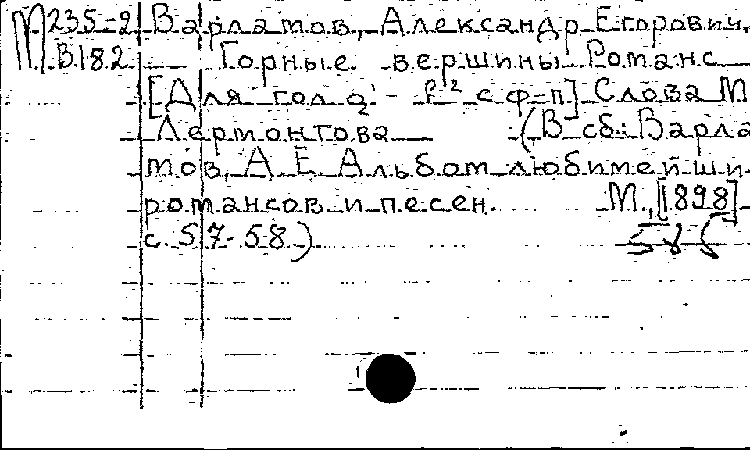 М 235-2 Варламов, Александр Егорович.
В.182 Горные вершины Романс
[Для гол a² - с ф-п] Слова М
Лермонтова (В сб: Варла
мов, А Е Альбом любимейши
романсов и песен. М., [1898]
с. 57-58)